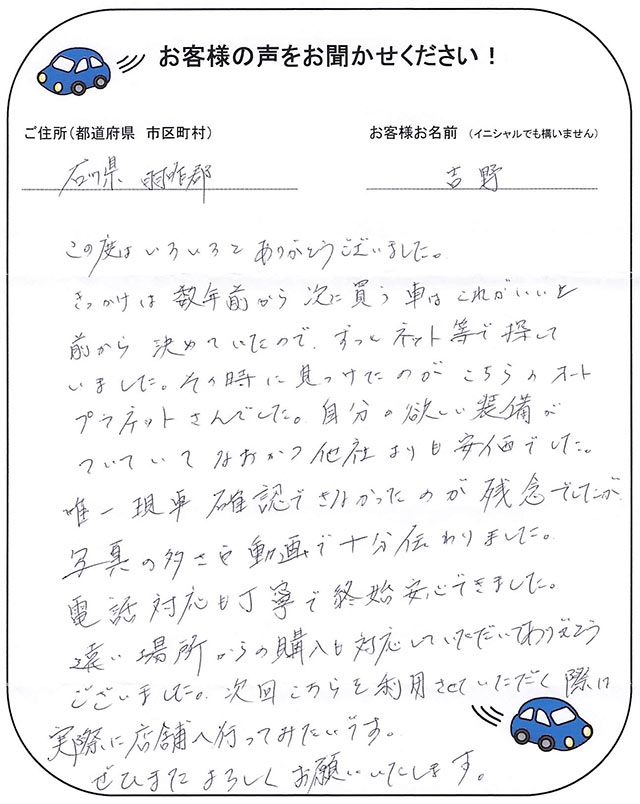 お客様の声をお聞かせください！
ご住所（都道府県 市区町村）
お客様お名前 （イニシャルでも構いません）
石川県 羽咋郡
吉野
この度はいろいろとありがとうございました。
きっかけは数年前から次に買う車はこれがいいと
前から決めていたので、ずっとネット等で探して
いました。その時に見つけたのがこちらのオート
プラネットさんでした。自分の欲しい装備が
ついていてなおかつ他社よりも安価でした。
唯一現車確認できなかったのが残念でしたが
写真の多さや動画で十分伝わりました。
電話対応も丁寧で終始安心できました。
遠い場所からの購入も対応していただいてありがとう
ございました。次回こちらを利用させていただく際に
実際に店舗へ行ってみたいです。
ぜひまたよろしくお願いいたします。